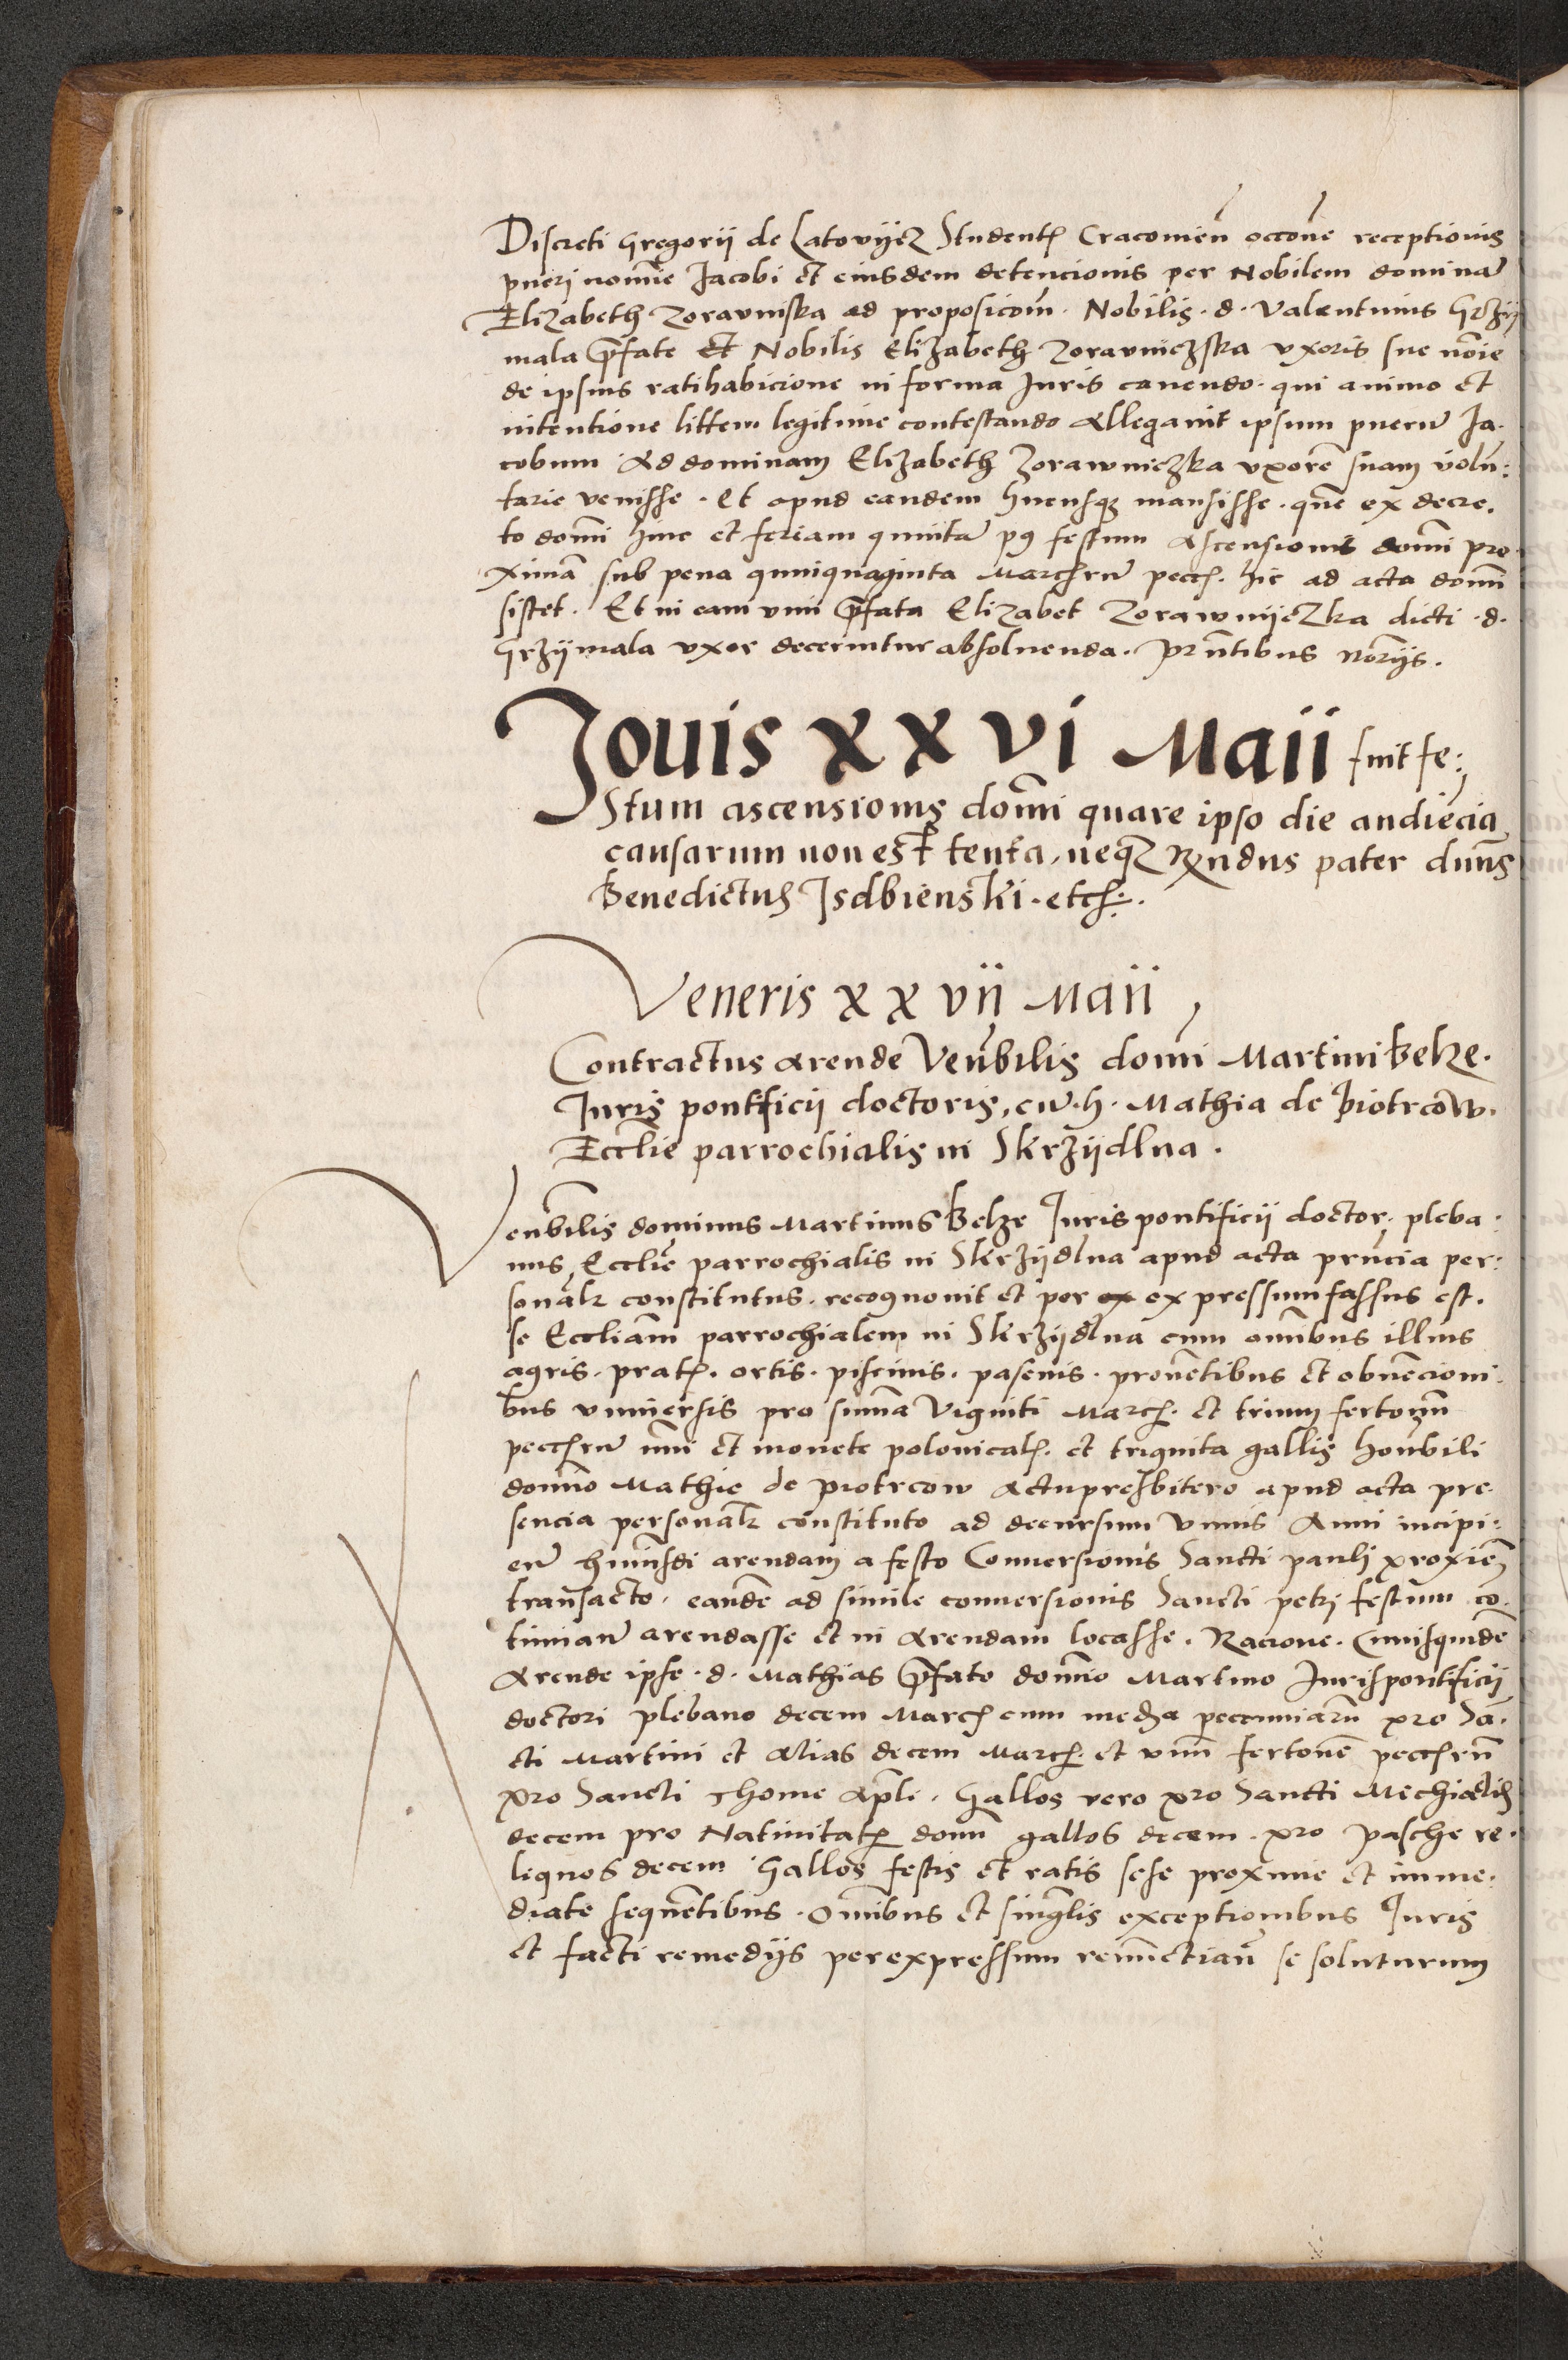 Discreti Gregorii de Latovijcz Studentꝭ Cracouien̄ occōne receptionis
pueri nomīe Jacobi et eiusdem detencionis per Nobilem dominā
Elizabeth Zoravniska ad proposicōm. Nobilis. d. Valentinus Grzÿ
mala p̄fate et Nobilis Elizabeth Zoravniczska vxoris sue nōie
de ipsius ratihabicione in forma Juris cauendo. qui animo et
intentione littem legitime contestando Allegauit ipsum puerū Ja.
cobum Ad dominam Elizabeth Zorawniczka vxorē suam volū:
tarie venisse. Et apud eandem hucusqꝫ mansisse. quē ex decre.
to domī hinc et feriam quintā pꝰ festum Ascensionis domī pro.
ximā sub pena quinquaginta Marcharū pecch. hic ad acta domī
sistet. Et in eam vim p̄fata Elizabet Zorawnijczka dicti. d.
Grzÿmala vxor decernitur absoluenda. pr̄ntibus nōrijs.
Jouis xx vi Maii fuit fe:
stum ascensionis domī quare ipso die audiēcia
causarum non est tenta, neqꝫ Rx̄ndus pater dnūs
Benedictus Jsdbienski. etc.
Veneris xx vii Maii
Contractus arende Ven̄bilis domī Martini Belze.
Juris pontificii doctoris, cū. h. Mathia de Piotrcow.
Eccl̄ie parrochialis in Skrzÿdlna.
Ven̄bilis dominus Martinus Belze Juris pontificii doctor, pleba:
nus Eccl̄ie parrochialis in Skrzÿdlna apud acta pr̄ncia per:
sonalr̄ constitutus. recognouit et per ex expressum fassus est.
se Eccl̄iam parrochialem in Skrzÿdlna cum om̄ibus illius
agris. pratꝭ. ortis. piscinis. pascuis. prouētibus et obuēcioni:
bus vniuersis pro sum̄a Viginti March. et trium fertoūm
peccharū nūmi et monete polonicalꝭ. et triginta gallis honōbili
domīo Mathie de Piotrcow Actupresbitero apud acta pre
sencia personalr̄ constituto ad decursum Vnius Anni incipi:
en̄ huiusdi arendam a festo Conuersionis Sancti pauli proxīe
transacto. eandē ad simile conuersionis Sancti petri festum cō.
tinuan̄ arendasse et in Arendam locasse. Racione. Cuiusquidē
Arende ipse. d. Mathias p̄fato domīo Martino Jurispontificii
doctori plebano decem March cum media pecuniarū pro Sā.
cti Martini et Alias decem March. et vnū fertonē peccharū
pro Sancti Thome Apl̄i. Gallos vero pro Sancti Michaelis
decem pro Natiuitatꝭ domī gallos decem. pro Pasche re.
liquos decem Gallos festis et ratis sese proxime et imme.
diate sequētibus. Om̄ibus et singul̄is exceptionibus Juris
et facti remedijs per expressum renūctian̄ se soluturum